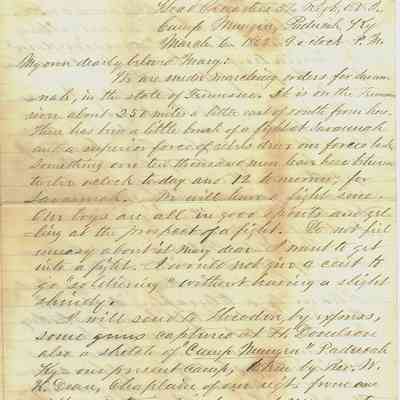 Head Quarters 57 Regt. O.V.I.
Camp Munger, Paducah, Ky
March 6 1862. 9 o'clock P.M.
My own dearly beloved Mary:
We are under marching orders for Savan-
nah, in the state of Tennessee. It is on the Tennes-
see about 250 miles a little east of south from here.
There has been a little brush of a fight at Savannah
and a superior force of rebels drove our forces back
something over ten thousand men leave here between
twelve oclock to day and 12 to morrow, for
Savannah. We will have a fight sure.
Our boys are all in good spirits and yel-
ling at the prospect of a fight. Do not feel
uneasy about it Mary dear. I want to get
into a fight. I would not give a cent to
go "soldiering" without having a slight
shindy.
I will send to Theodore by express,
some guns captured at Ft. Donelson
also a sketch of "Camp Munger" Paducah
Ky - our present camp, taken by Rev. W.
K. Dean, Chaplain of our regt. from